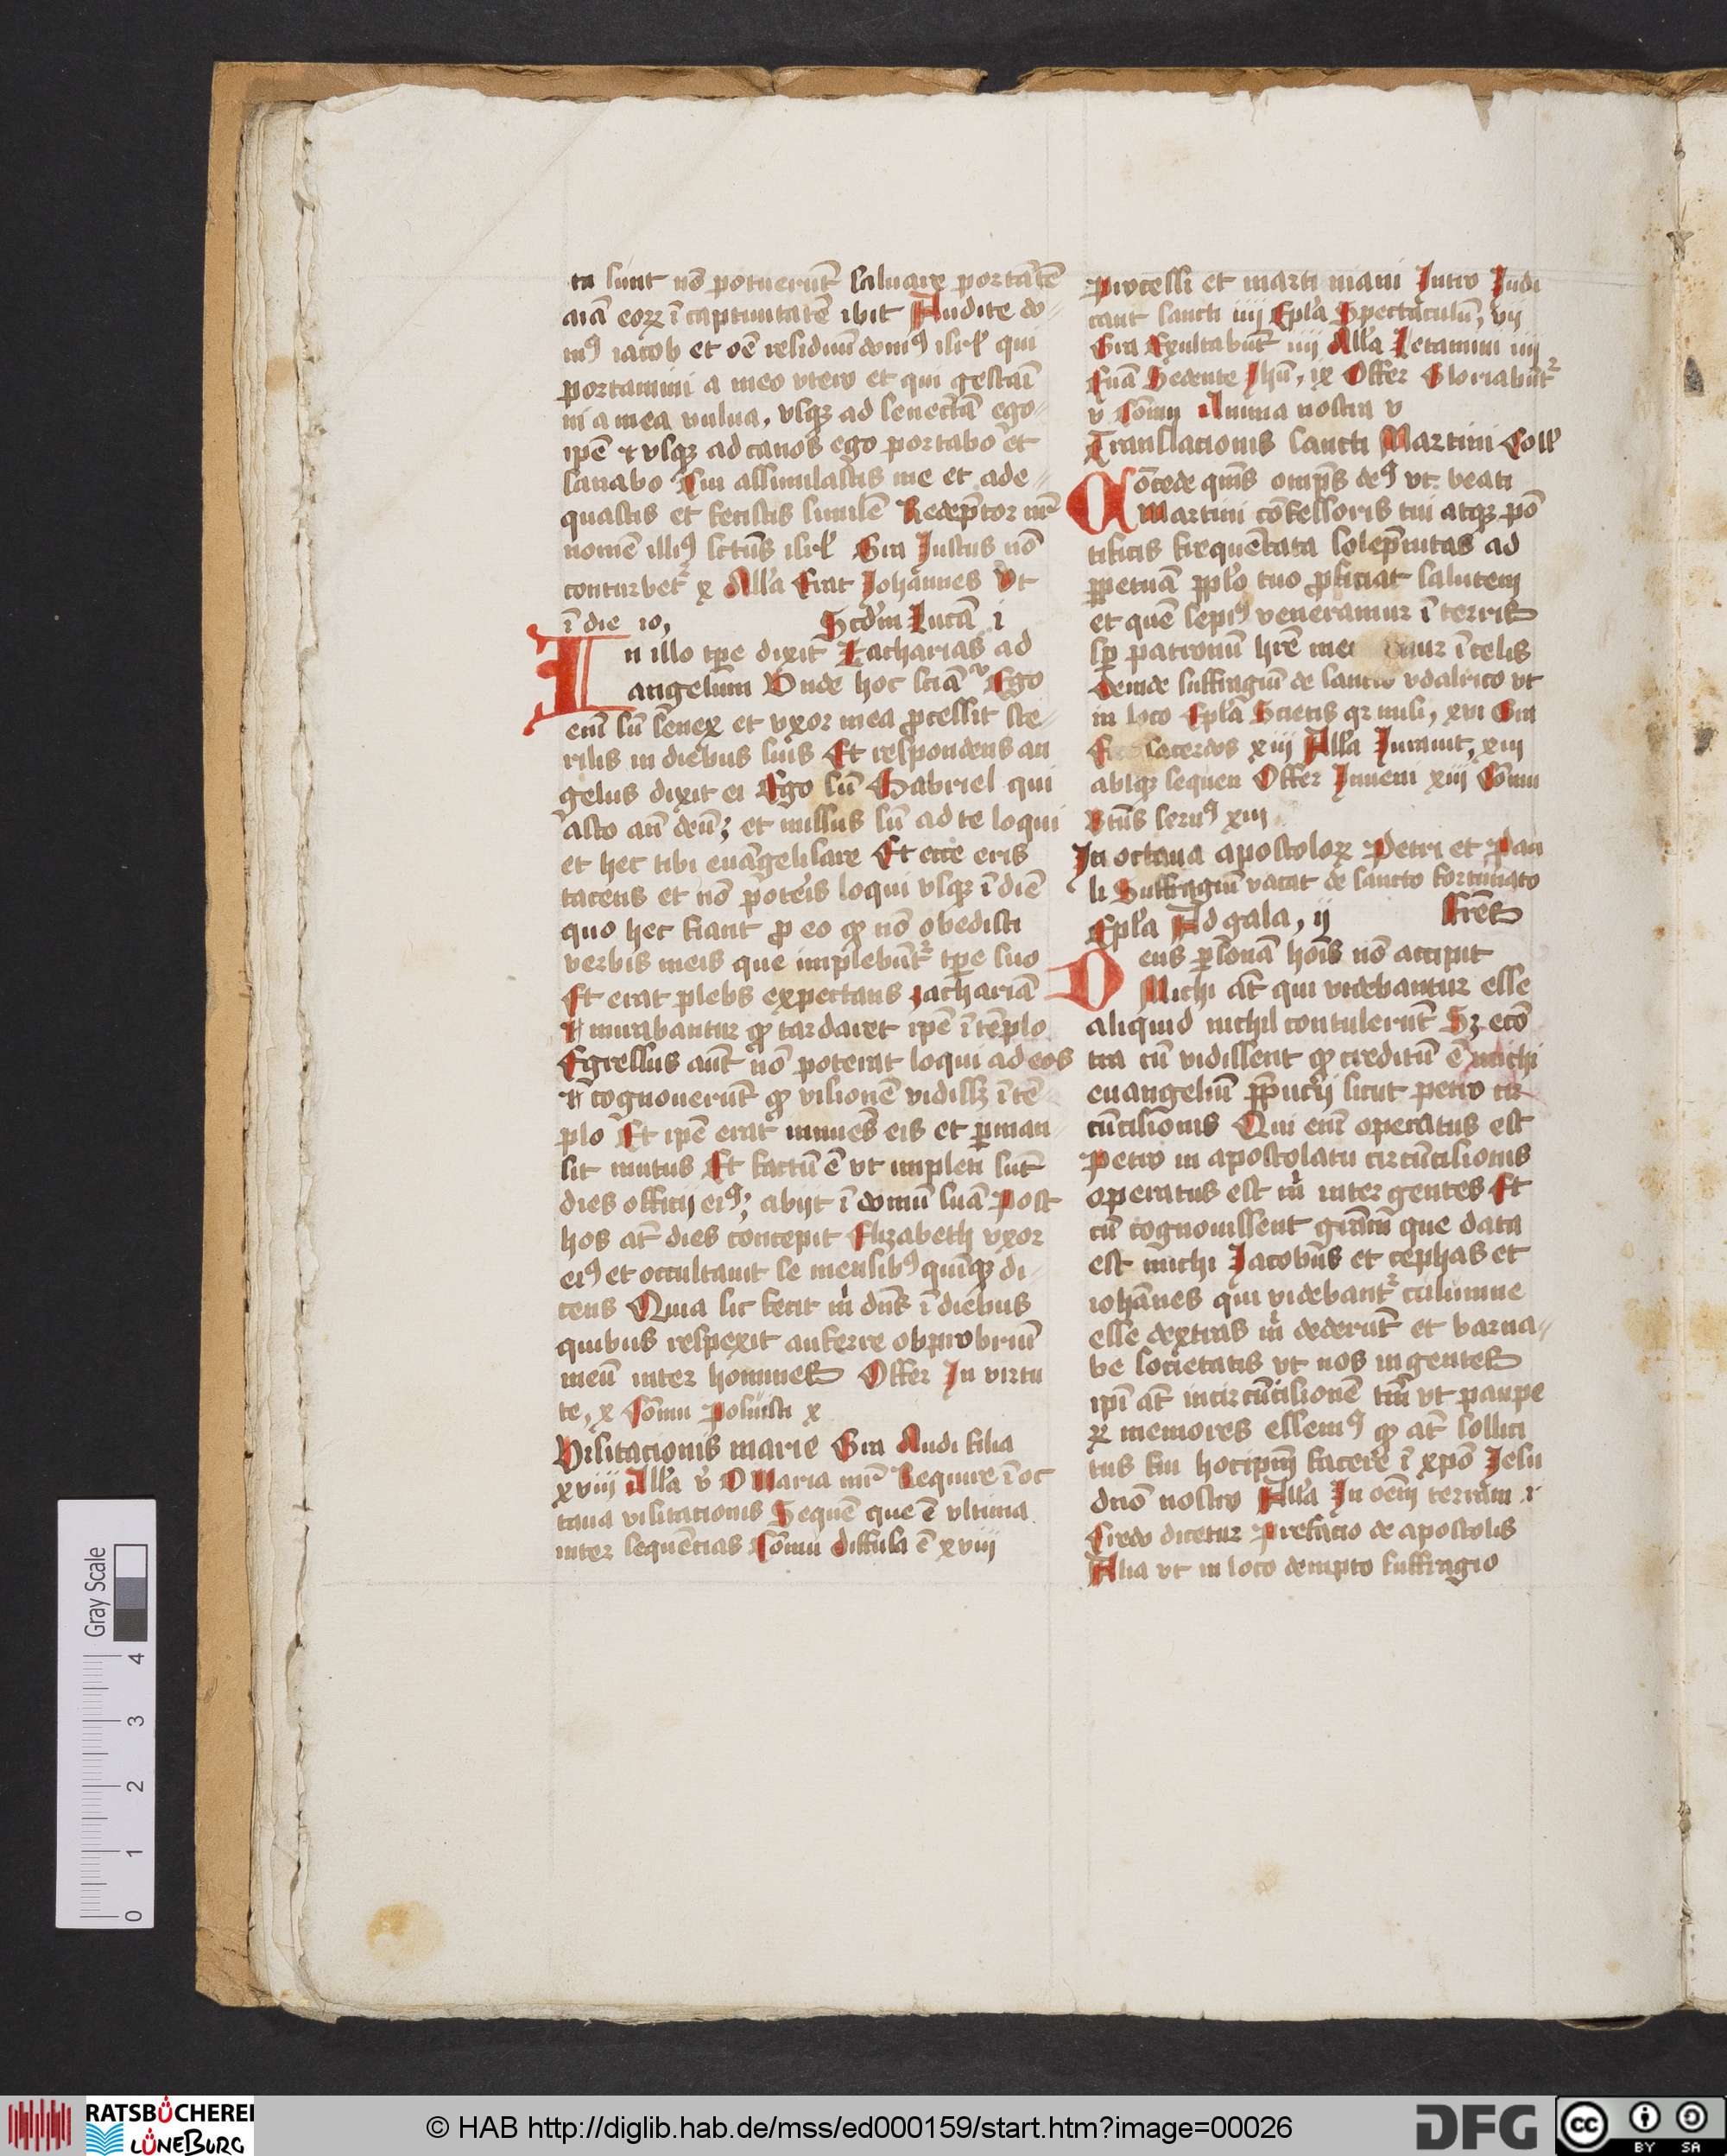 ta sunt nō potuerūt saluare portātē
aīā eorꝝ ī captiuitatē ibit Audite do
mꝰ iacob et oē residuū domꝰ isrl̕ qui
portamini a meo vtero et qui gestaī
ni a mea vulua, vsqꝫ ad senectā ego
ipē ⁊ vsqꝫ ad canos ego portabo et
sanabo Cui assimilastis me et ade
quastis et fecistis similē Redēptor nr̄
nomē illiꝰ sctūs isrl̕ Gra Justus nō
conturbet᷑ x All'a Erat Johannes Vt
ī die io, Scd'm Lucā i
In illo tp̄e dixit Zacharias ad
angelum Vnde hoc sciā Ego
eni sū senex et vxor mea ꝓcessit ste
rilis in diebus suis Et respondens an
gelus dixit ei Ego sū Gabriel qui
asto an̄ deū; et missus sū ad te loqui
et hec tibi euāgelisare Et ecce eris
tacens et nō poteris loqui vsqꝫ ī diē
quo hec fiant ꝓ eo ꝙ nō obedisti
verbis meis que implebūt᷑ tp̄e suo
Et erat plebs expectans zachariā
⁊ mirabantur ꝙ tardaret ipē ī tēplo
Egressus aūt nō poterat loqui ad eos
⁊ cognouerūt ꝙ visionē vidissꝫ ī tē
plo Et ipē erat innuēs eis et ꝑman
sit mutus Et factū ē vt impleti sūt
dies officij eiꝰ; abijt ī domū suā Post
hos at̄ dies concepit Elizabeth vxor
eiꝰ et occultauit se mensibꝰ quīqꝫ di
cens Quia sic fecit m̄ dn̄s ī diebus
quibus respexit auferre obprobriū
meū inter homines Offer In virtu
te, x Cōmu Posuisti x
Visitacionis marie Gra Audi filia
xviij All'a v̄ O Maria nr̄ Require ī oc
taua visitacionis Sequē que ē vltima
inter sequēcias Cōmu diffusa ē xviij
Processi et martiniani Intro Judi
cant sancti iiij Epl'a Spectaculū, vij
Gra Exultabūt iiij All'a Letamini iiij
Euā Sedente Jhū, ix Offer Gloriabūt᷑
v Cōmu Anima nostra v
Translacionis sancti Martini Coll'
Cōcede qm̄s omp̄s deꝰ vt beati
Martini cōfessoris tui atqꝫ pō
tificis frequētata solēpnitas ad
ꝑpetuā pplo tuo ꝓficiat salutem
et quē sepiꝰ veneramur ī terris
sp̄ patronū hr̄e mer mur ī celis
Deinde suffragiū de sancto vdalrico vt
in loco Epl'a Scietis qr mihi, xvi Gra
sacerdos xiij All'a Jurauit, xiij
absqꝫ sequen Offer Inueni xiij Cōmu
Btūs seruꝰ xiij
In octaua apostoloꝝ Petri et Pau
li Suffragiū vacat de sancto fortunato
Epl'a Ad gala, ij Frēs
Deus ꝑsonā hoīs nō accipit
Michi at̄ qui videbantur esse
aliquid nichil contulerūt Sꝫ ecō
tra cū vidissent ꝙ creditū ē michi
euangeliū ppucij sicut petro cir
cūcisionis Qui eni operatus est
Petro in apostolatu circūcisionis
operatus est m̄ inter gentes Et
cū cognouissent grām que data
est michi Jacobus et cephas et
iohānes qui videbant᷑ columne
esse dextras m̄ dederūt et barna
be societatis vt nos in gentes
ip̄i at̄ in circūcisionē tm̄ vt paupe
ꝝ memores essemꝰ ꝙ at̄ sollici
tus fui hoc ipm̄ facere ī xpō Jesu
dn̄o nostro All'a In oēm terram i
Credo dicetur Prefacio de apostolis
Alia vt in loco dempto suffragio
Gray Scale
4
3
2
1
0
RATSBÜCHEREI
LÜNEBURG
© HAB http://diglib.hab.de/mss/ed000159/start.htm?image=00026
DFG
cc
BY SA